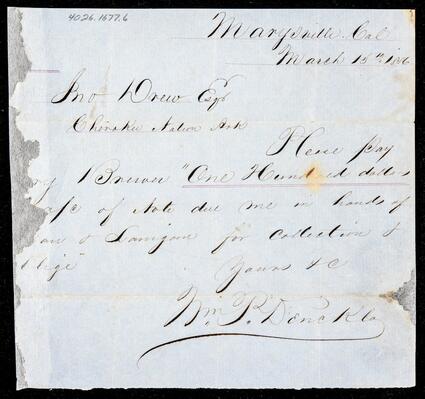 4026.1677.6
Marysville Cal
March 15th 186
Jno Drew Esqr
Cherokee Nation Ark
Please Pay
Brewer "One Hundred dollars
a/c of Note due me in hands of
& Lanigan for collection &
blige"
Yours &C
Wm. P. Denckla